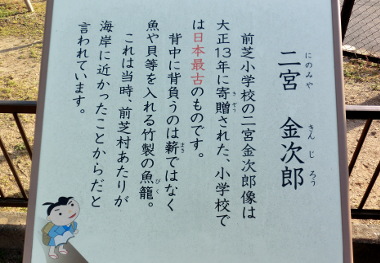 二宮 金次郎
にのみや きんじろう
前芝小学校の二宮金次郎像は
大正13年に寄贈された、小学校で
きぞう
は日本最古のものです。
背中に背負うのは薪ではなく
まき
魚や貝等を入れる竹製の魚籠。
びく
これは当時、前芝村あたりが
海岸に近かったことからだと
言われています。